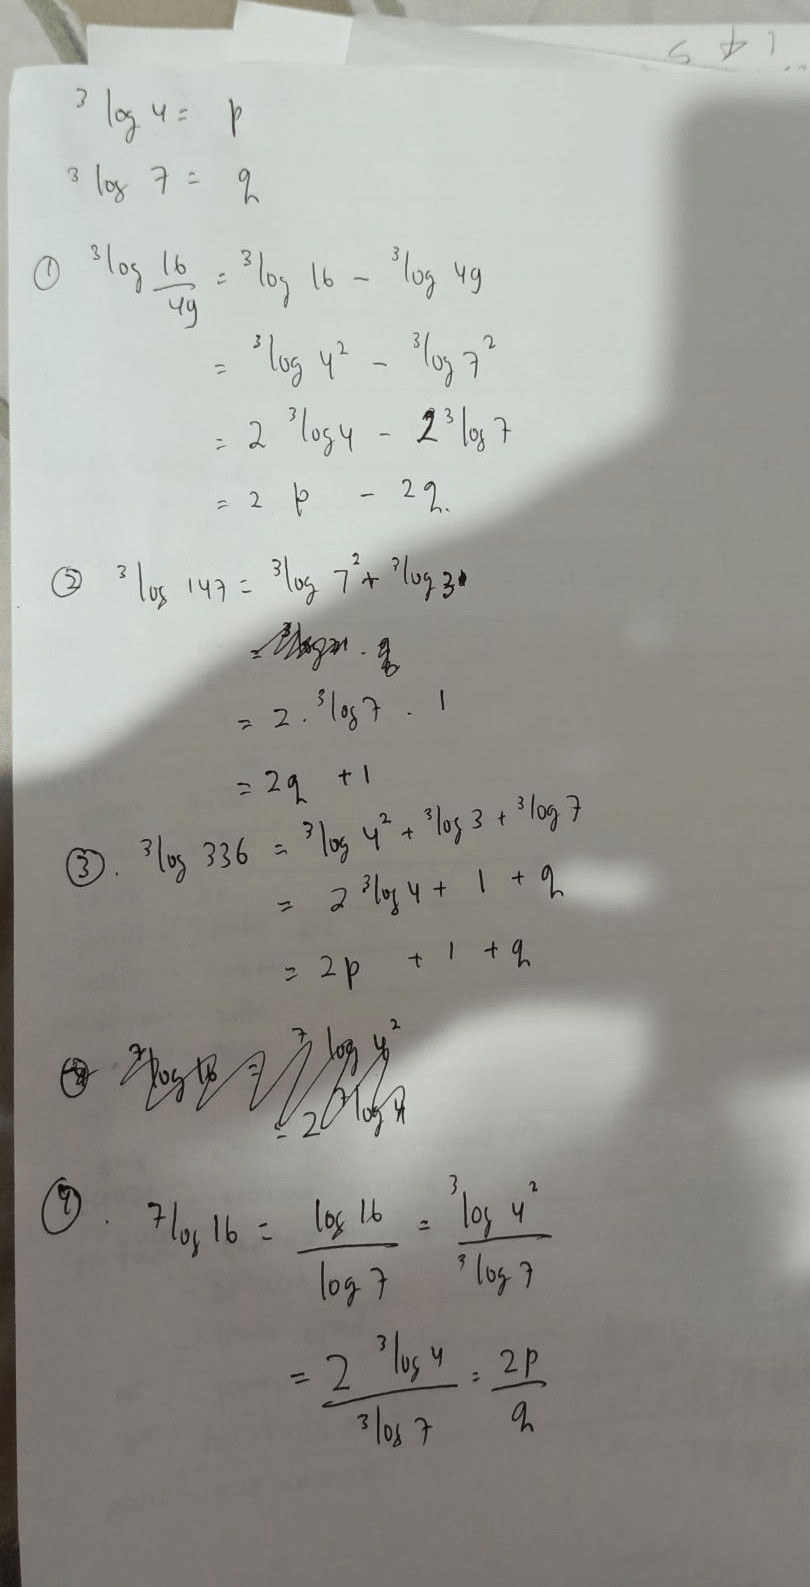 ³log 4 = p
³log 7 = q
① ³log 16/49 = ³log 16 - ³log 49
= ³log 4² - ³log 7²
= 2 ³log 4 - 2 ³log 7
= 2 p - 2q.
② ³log 147 = ³log 7² + ³log 3
= 2 . ³log 7 . 1
= 2q + 1
③. ³log 336 = ³log 4² + ³log 3 + ³log 7
= 2 ³log 4 + 1 + q
= 2p + 1 + q
⁷log 16 = ⁷log 4²
= 2 ⁷log 4
④. ⁷log 16 = log 16 / log 7 = ³log 4² / ³log 7
= 2 ³log 4 / ³log 7 = 2p / q